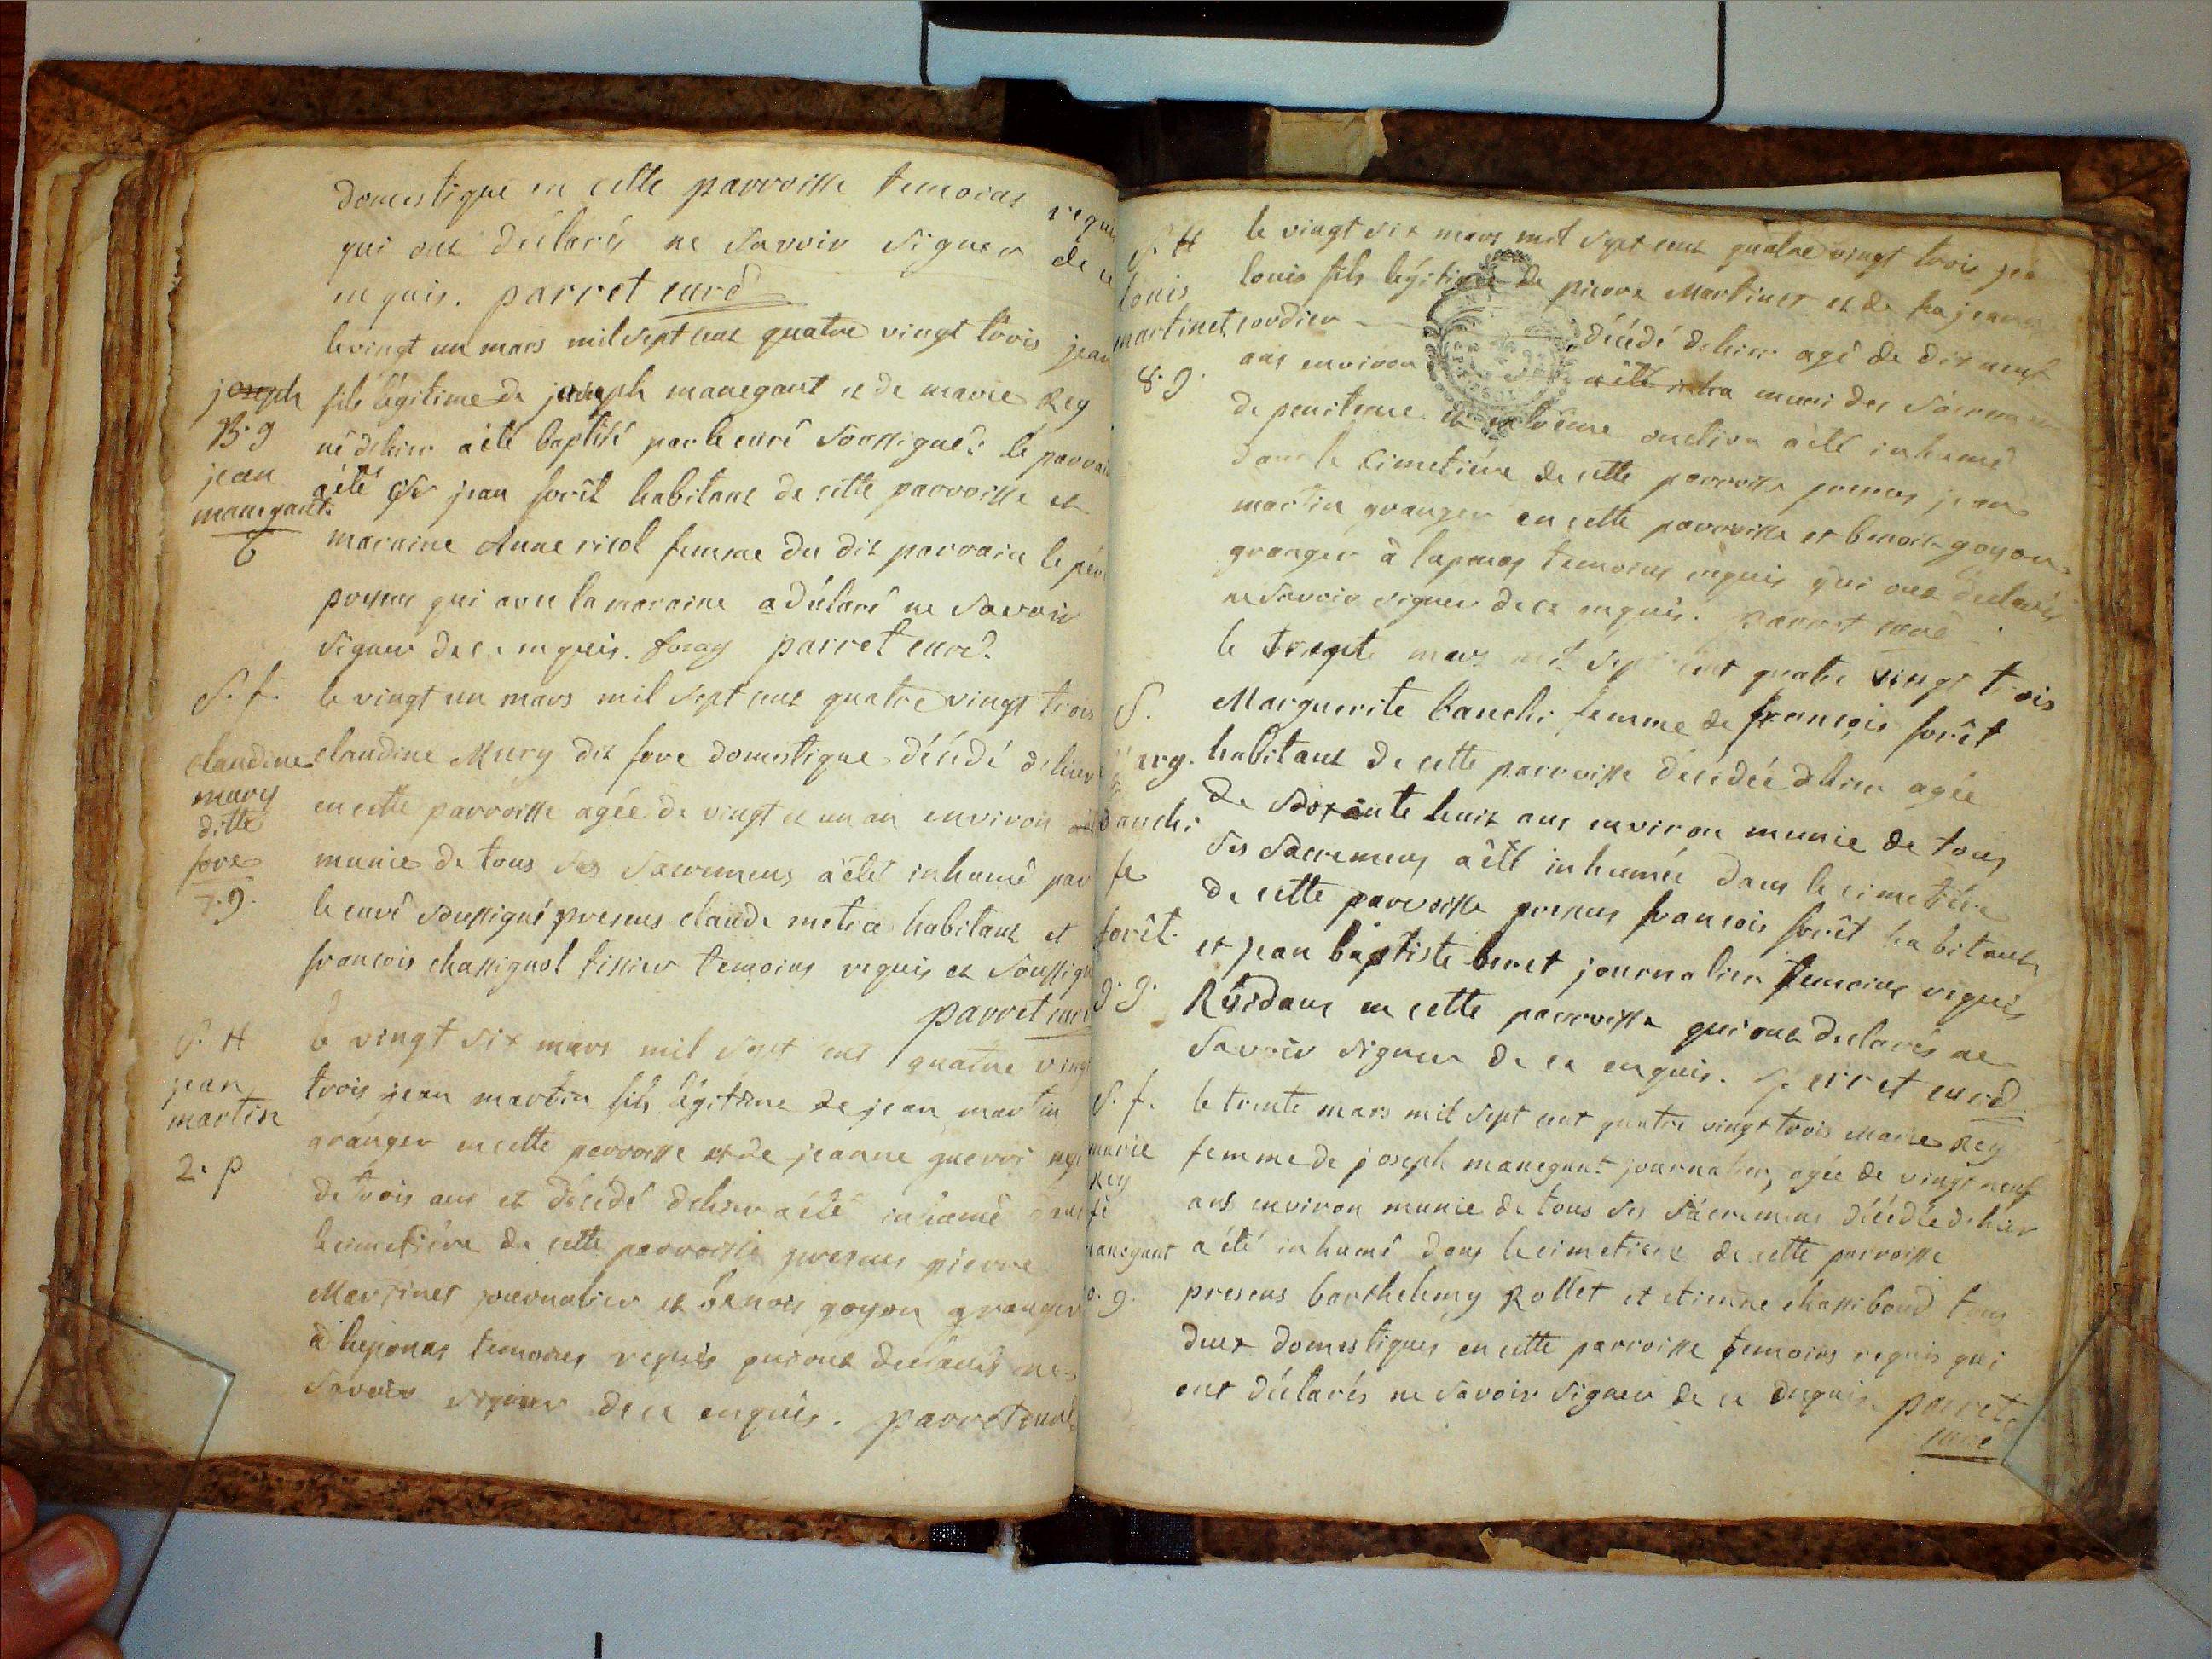 domestique en cette parroisse temoins requis
qui ont déclarés ne savoir signer de ce
enquis. parret curé
le vingt un mars mil sept cent quatre vingt trois jean
joseph
fils légitime de joseph manegant et de marie Rey
B. g
né dehier a été baptisé par le curé soussigné: le parrain
jean
manegant
6
a été Sr jean forêt habitant de cette parroisse et
maraine Anne ricol femme du dit parrain le père
present qui avec la maraine a déclaré ne savoir
signer de ce enquis. foray parret curé
S. f.
le vingt un mars mil sept cent quatre vingt trois
claudine
claudine Mury dit fore domestique décédé dehier
mury
ditte
fore
7. g.
en cette parroisse agée de vingt et un an environ
munie de tous ses sacremens a été inhumé par
le curé soussigné presens claude metra habitant et
francois chassignol tissier temoins requis et soussigné
parret curé
S. H
le vingt six mars mil sept cent quatre vingt
jean
martin
trois jean martin fils légitime de jean martin
2. p
granger en cette parroisse et de jeanne guerri agé
de trois ans et décédé dehier a été inhumé dans
le cimetière de cette parroisse presens pierre
Martinet journalier et benoit goyon granger
à laponas temoins requis qui ont declarés ne
savoir signer de ce enquis. parret curé
S. H
le vingt six mars mil sept cent quatre vingt trois
louis
louis fils légitime de pierre Martinet et de jeanne
martinet
cordier décédé dehier agé de dix neuf
8. g.
ans environ a été inhu muni des sacremens
de penitence et extreme onction a été inhumé
dans le cimetière de cette parroisse presens jean
martin granger en cette parroisse et benoit goyon
granger à laponas temoins requis qui ont declarés
ne savoir signer de ce enquis. parret curé
le mars mil sept cent quatre vingt trois
S.
Marguerite banchi femme de françois forêt
marg.
habitant de cette parroisse décédée dehier agée
banchi
de soixante huit ans environ munie de tous
fe
ses sacremens a été inhumée dans le cimetière
de cette parroisse presens francois forêt habitant
forêt.
et jean baptiste beret journalier temoins requis
9. g.
Residans en cette parroisse qui ont declarés ne
savoir signer de ce enquis. parret curé
S. f.
le trente mars mil sept cent quatre vingt trois Marie Rey
marie
Rey
femme de joseph manegant journalier, agée de vingt neuf
fe
ans environ munie de tous ses sacremens décédée dehier
manegant
a été inhumé dans le cimetiere de cette parroisse
10. g.
presens barthelemy Rollet et etienne chassiboud tous
deux domestiques en cette parroisse temoins requis qui
ont déclarés ne savoir signer de ce enquis. parret
curé